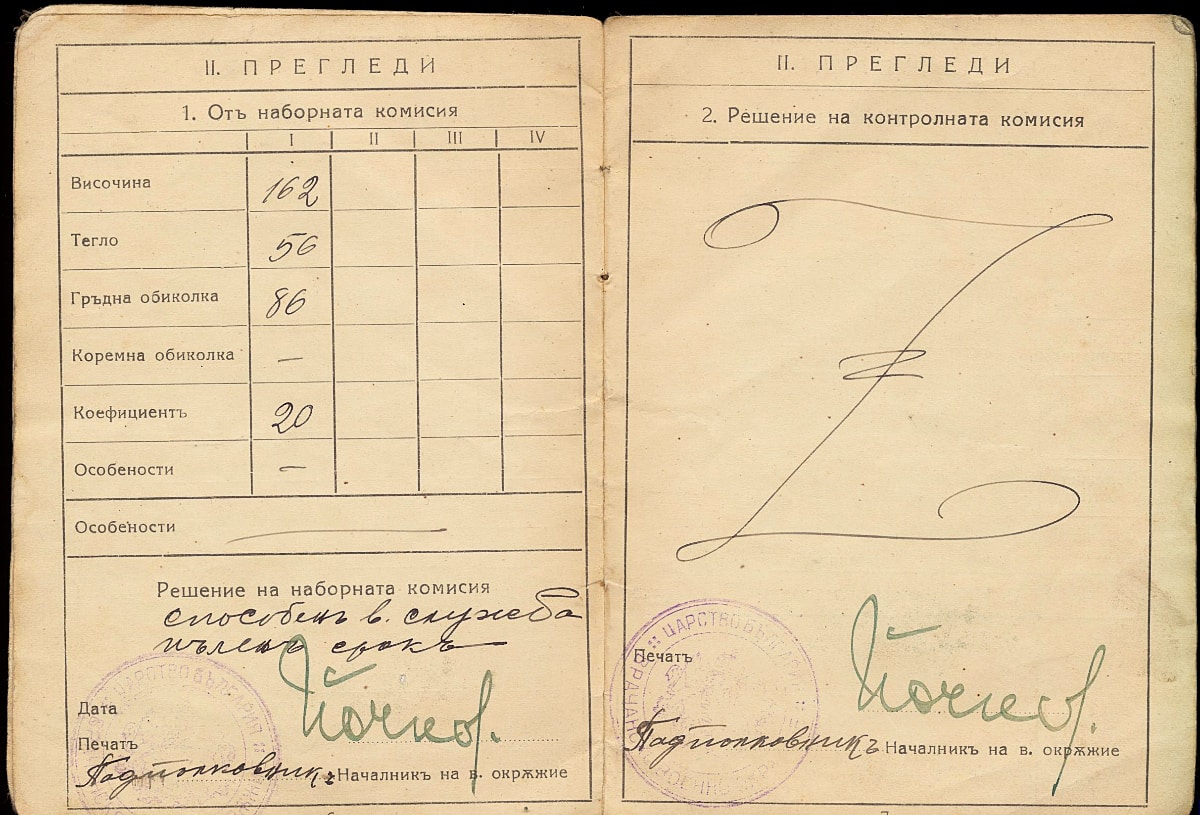 II. ПРЕГЛЕДИ
1. Отъ наборната комисия
I II III IV
Височина 162
Тегло 56
Гръдна обиколка 86
Коремна обиколка —
Коефициентъ 20
Особености —
Особености —
Решение на наборната комисия
способенъ в. служба
пъленъ срокъ
ЦАРСТВО БЪЛГАРИЯ
Дата
Печатъ
Подполковникъ Началникъ на в. окрѫжие
II. ПРЕГЛЕДИ
2. Решение на контролната комисия
ЦАРСТВО БЪЛГАРИЯ
Печатъ
Подполковникъ Началникъ на в. окрѫжие